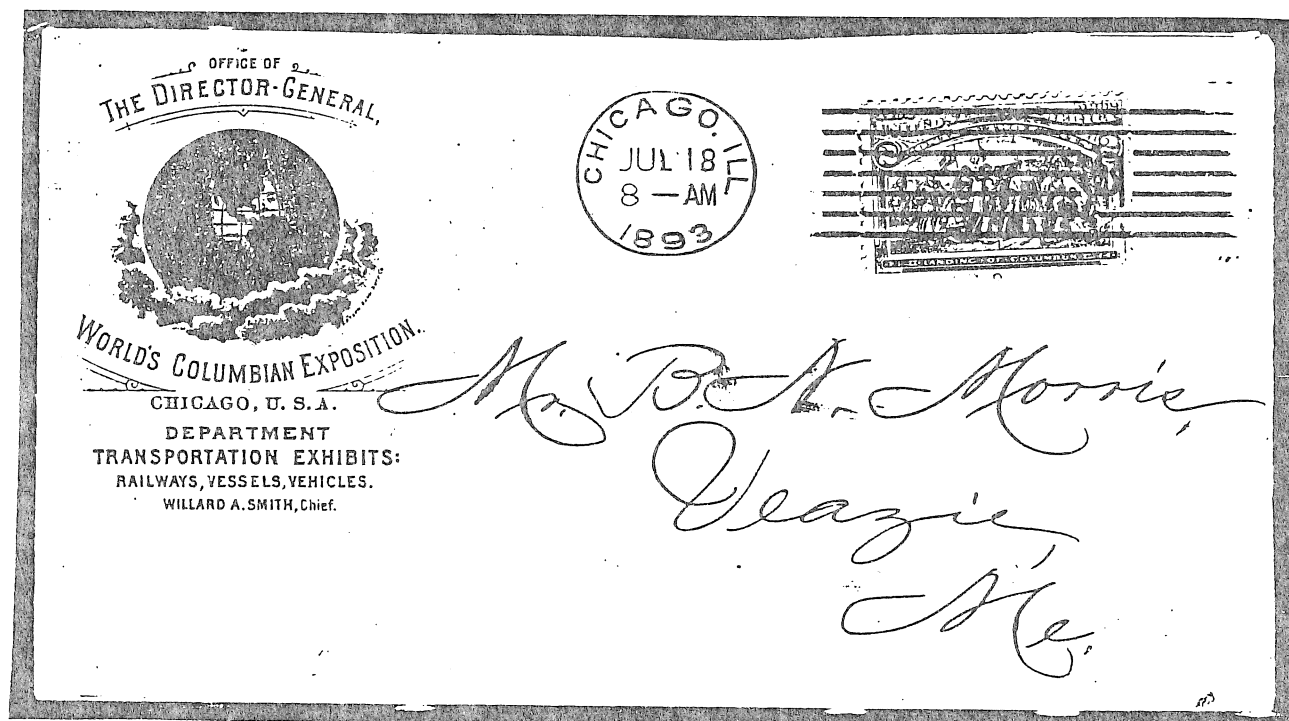 OFFICE OF
THE DIRECTOR-GENERAL,
WORLD'S COLUMBIAN EXPOSITION.
CHICAGO, U. S. A.
DEPARTMENT
TRANSPORTATION EXHIBITS:
RAILWAYS, VESSELS, VEHICLES.
WILLARD A. SMITH, Chief.
CHICAGO. ILL
JUL 18
8 — AM
1893
LANDING OF COLUMBUS
Mr. B. N. Morris,
Veazie,
Me.